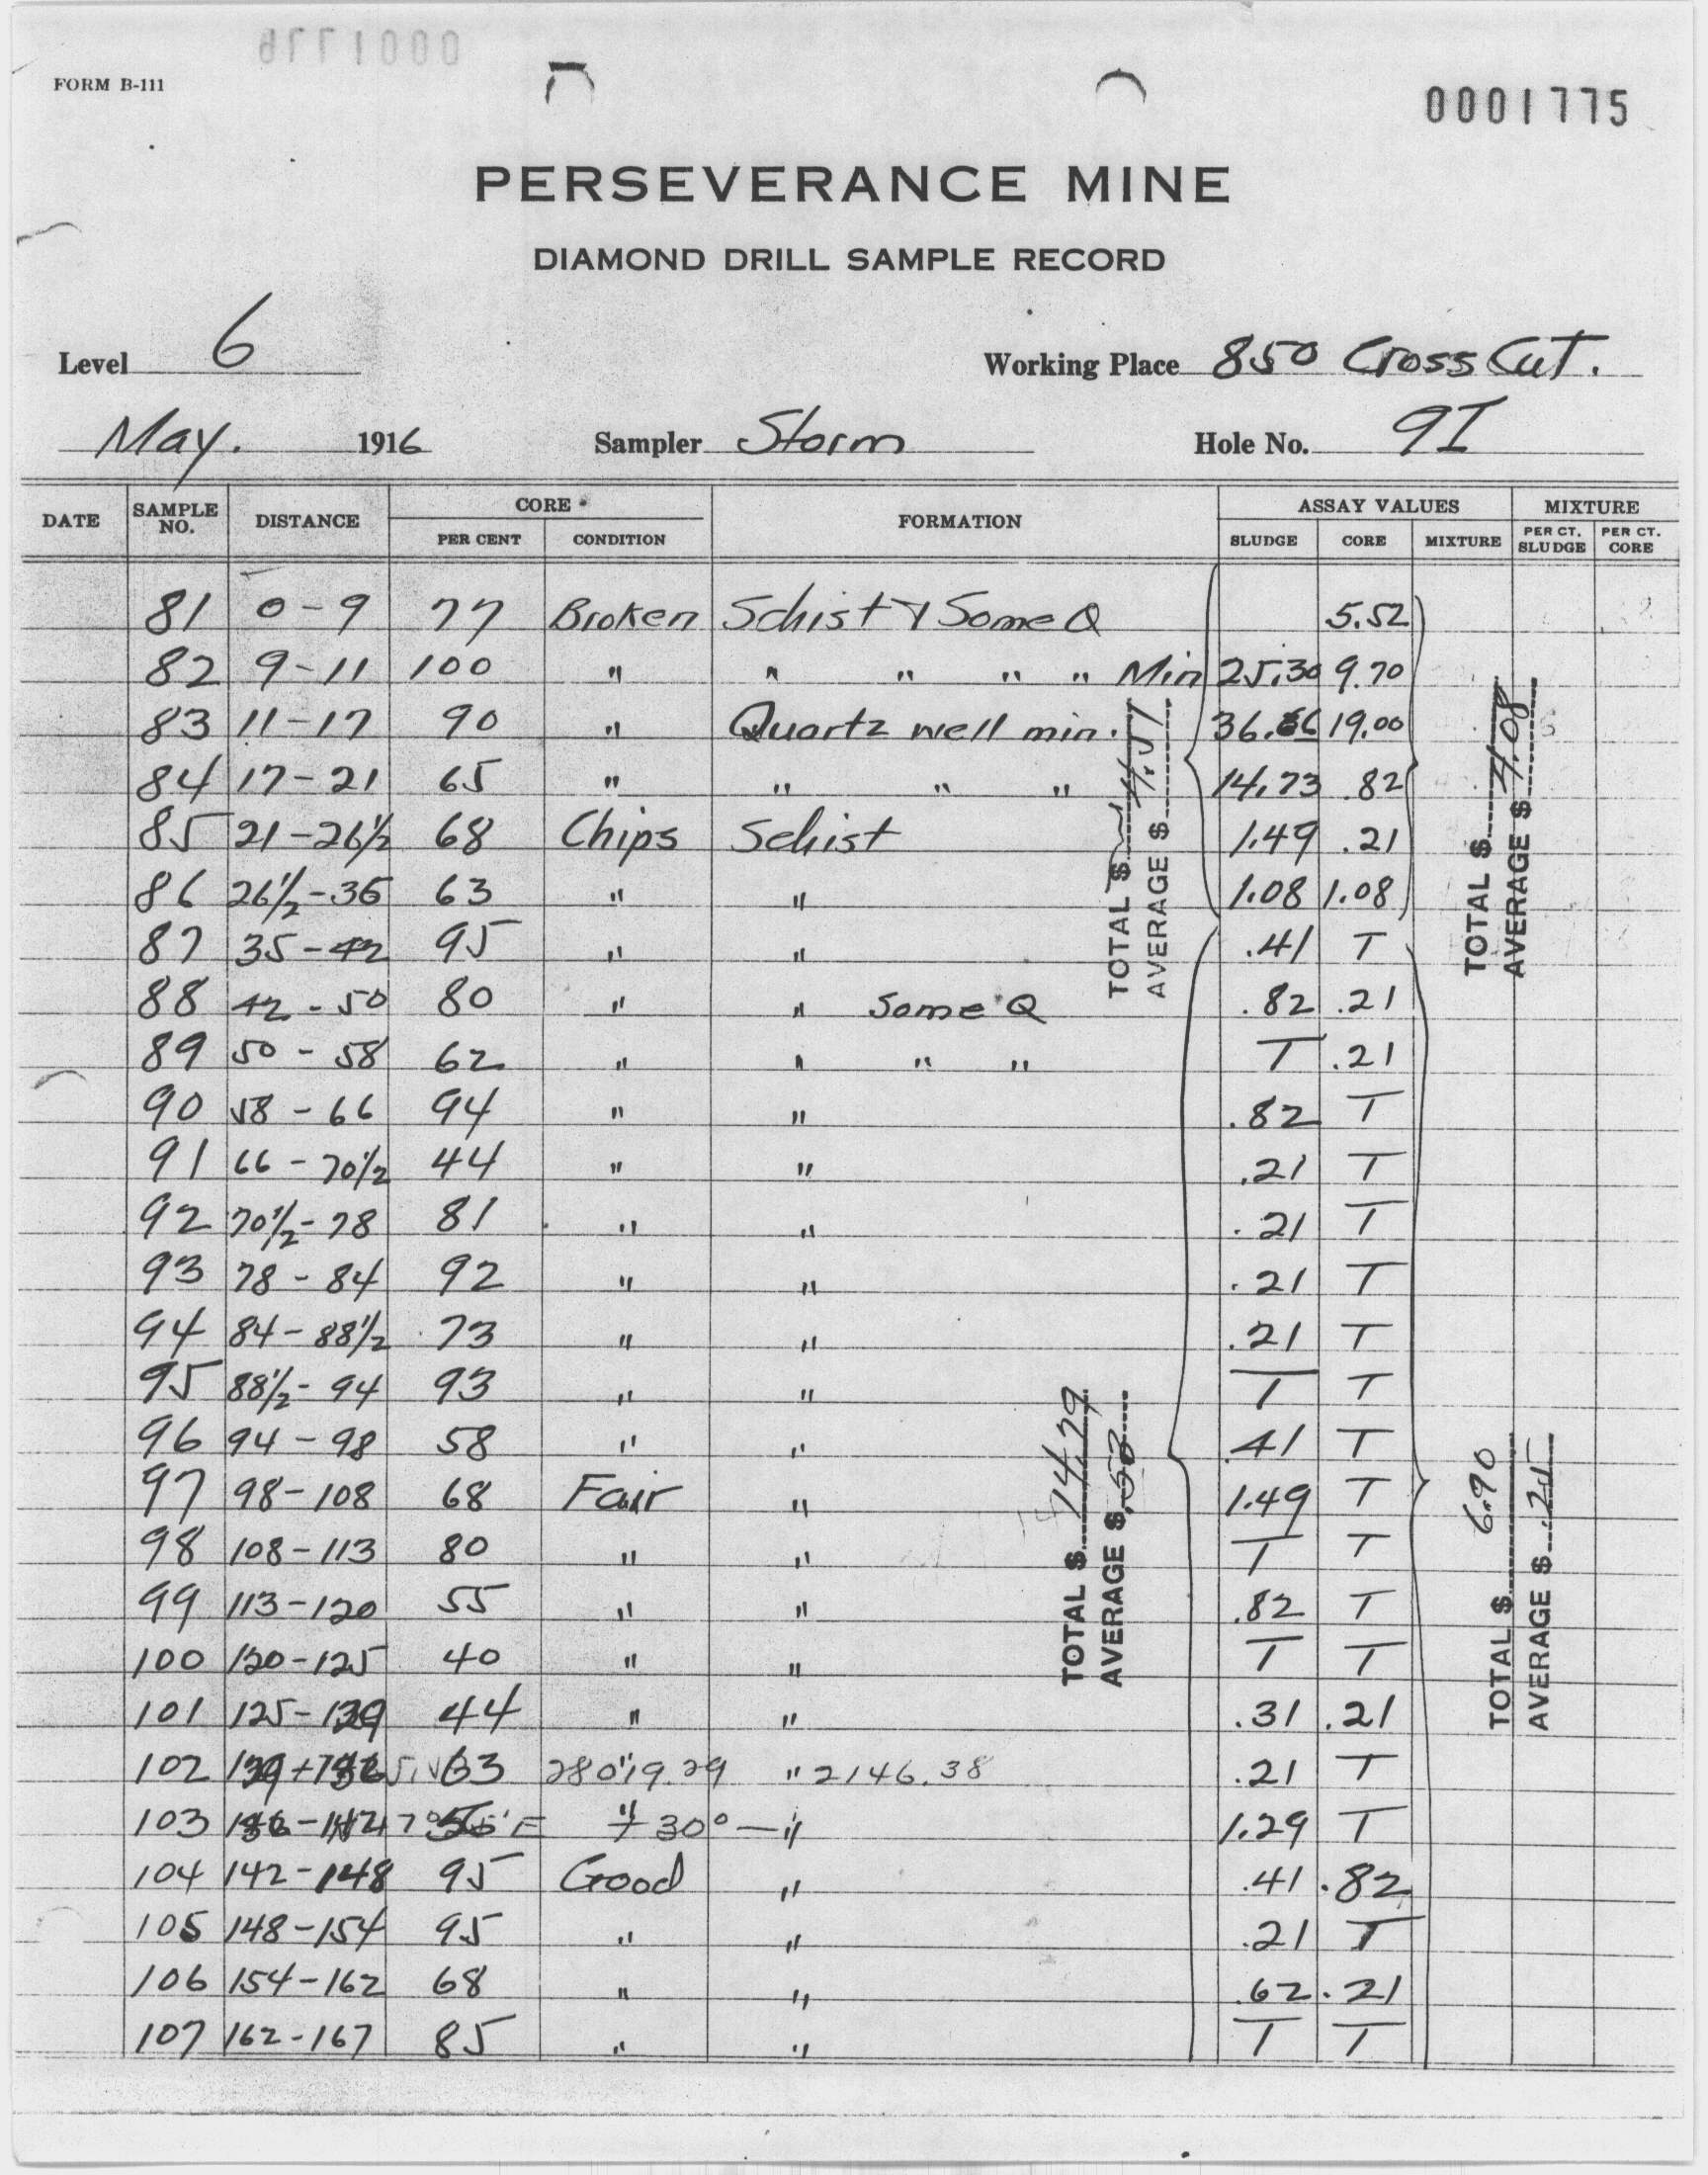 0001776
FORM B-111
0001775
PERSEVERANCE MINE
DIAMOND DRILL SAMPLE RECORD
Level 6 Working Place 850 Cross Cut.
May. 1916 Sampler Storm Hole No. 9I
DATE SAMPLE NO. DISTANCE CORE FORMATION ASSAY VALUES MIXTURE
PER CENT CONDITION SLUDGE CORE MIXTURE PER CT. SLUDGE PER CT. CORE
81 0-9 77 Broken Schist & Some Q 5.52
82 9-11 100 " " " " " Min 25.30 9.70
83 11-17 90 " Quartz well min. 36. 19.00
84 17-21 65 " " " " 14.73 .82
85 21-26½ 68 Chips Schist 1.49 .21
86 26½-35 63 " " 1.08 1.08
87 35-42 95 " " .41 T
88 42-50 80 " " Some Q .82 .21
89 50-58 62 " " " " T .21
90 58-66 94 " " .82 T
91 66-70½ 44 " " .21 T
92 70½-78 81 " " .21 T
93 78-84 92 " " .21 T
94 84-88½ 73 " " .21 T
95 88½-94 93 " " T T
96 94-98 58 " " .41 T
97 98-108 68 Fair " 1.49 T
98 108-113 80 " " T T
99 113-120 55 " " .82 T
100 120-125 40 " " T T
101 125-129 44 " " .31 .21
102 63 28019.29 " 2146.38 .21 T
103 " + 30° — " 1.29 T
104 142-148 95 Good " .41 .82
105 148-154 95 " " .21 T
106 154-162 68 " " .62 .21
107 162-167 85 " " T T
TOTAL $
AVERAGE $
TOTAL $
AVERAGE $ 4.08
TOTAL $ 14.29
AVERAGE $ .53
TOTAL $ 6.90
AVERAGE $ .25